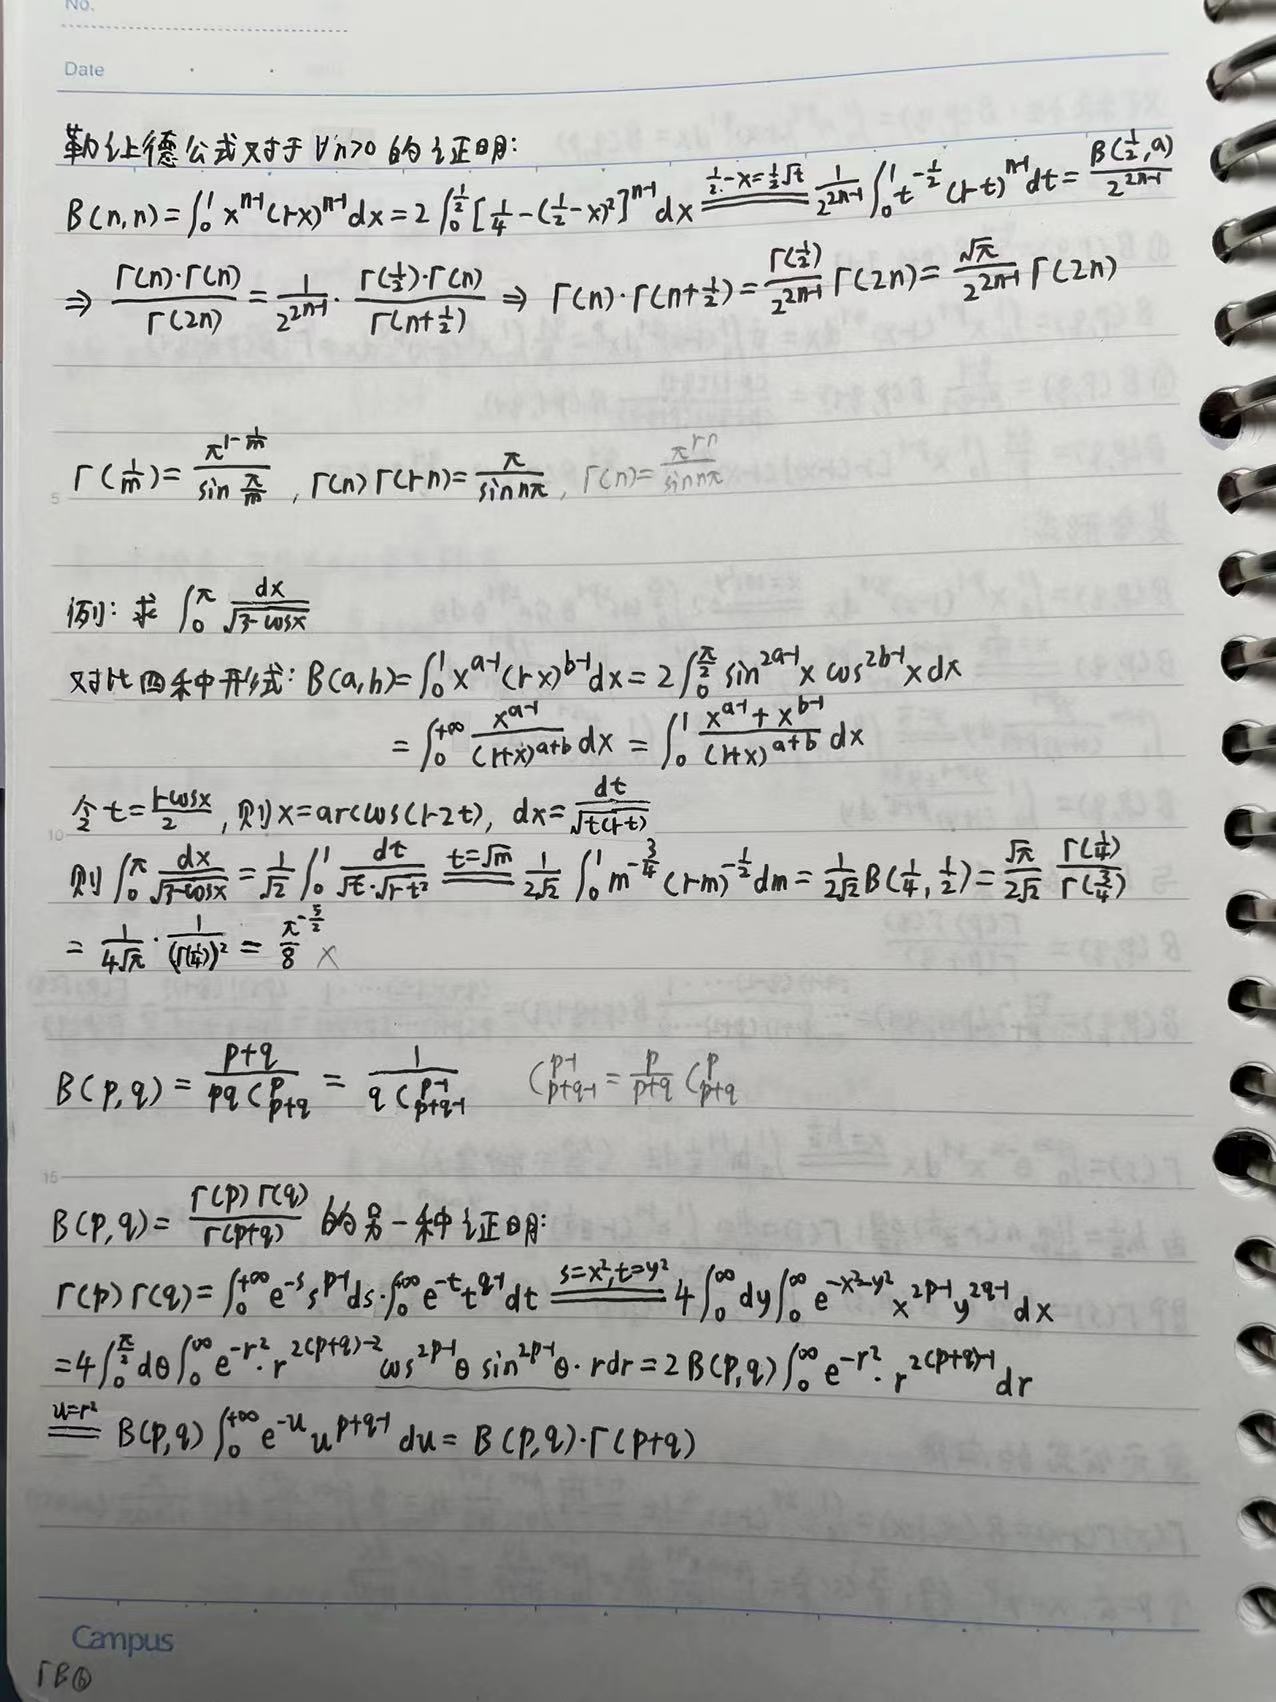 No.
Date
勒让德公式对于∀n>0的证明:
B(n,n)=∫₀¹ xⁿ⁻¹(1-x)ⁿ⁻¹dx=2∫₀^{1/2}[1/4-(1/2-x)²]ⁿ⁻¹dx =(1/2-x=1/2√t)= 1/2²ⁿ⁻¹ ∫₀¹ t^{-1/2}(1-t)ⁿ⁻¹dt= B(1/2,a)/2²ⁿ⁻¹
⇒ Γ(n)·Γ(n)/Γ(2n) = 1/2²ⁿ⁻¹ · Γ(1/2)·Γ(n)/Γ(n+1/2) ⇒ Γ(n)·Γ(n+1/2)= Γ(1/2)/2²ⁿ⁻¹ Γ(2n)= √π/2²ⁿ⁻¹ Γ(2n)
5
Γ(1/m)= π^{1-1/m}/sin π/m , Γ(n)Γ(1-n)= π/sin nπ , Γ(n)= π^{1-n}/sin nπ
例: 求 ∫₀^π dx/√(3-cosx)
对比四种形式: B(a,b)=∫₀¹ x^{a-1}(1-x)^{b-1}dx=2∫₀^{π/2} sin^{2a-1}x cos^{2b-1}x dx
=∫₀^{+∞} x^{a-1}/(1+x)^{a+b} dx = ∫₀¹ (x^{a-1}+x^{b-1})/(1+x)^{a+b} dx
10
令t=(1-cosx)/2, 则x=arccos(1-2t), dx= dt/√(t(1-t))
则∫₀^π dx/√(3-cosx) = 1/√2 ∫₀¹ dt/(√t·√(1-t²)) =(t=√m)= 1/(2√2) ∫₀¹ m^{-3/4}(1-m)^{-1/2}dm = 1/(2√2) B(1/4,1/2)= √π/(2√2) Γ(1/4)/Γ(3/4)
= 1/(4√π) · 1/(Γ(1/4))² = π^{-5/2}/8 ×
B(p,q)= (p+q)/(pq C_{p+q}^{p}) = 1/(q C_{p+q-1}^{p-1}) C_{p+q-1}^{p-1} = p/(p+q) C_{p+q}^{p}
15
B(p,q)= Γ(p)Γ(q)/Γ(p+q) 的另一种证明:
Γ(p)Γ(q)=∫₀^{+∞} e^{-s}s^{p-1}ds·∫₀^{+∞} e^{-t}t^{q-1}dt =(s=x²,t=y²)= 4∫₀^∞ dy∫₀^∞ e^{-x²-y²} x^{2p-1}y^{2q-1}dx
=4∫₀^{π/2} dθ∫₀^∞ e^{-r²}·r^{2(p+q)-2}cos^{2p-1}θ sin^{2p-1}θ·rdr=2B(p,q)∫₀^∞ e^{-r²}·r^{2(p+q)-1}dr
=(u=r²)= B(p,q)∫₀^{+∞} e^{-u}u^{p+q-1}du= B(p,q)·Γ(p+q)
Campus
ΓB⑥